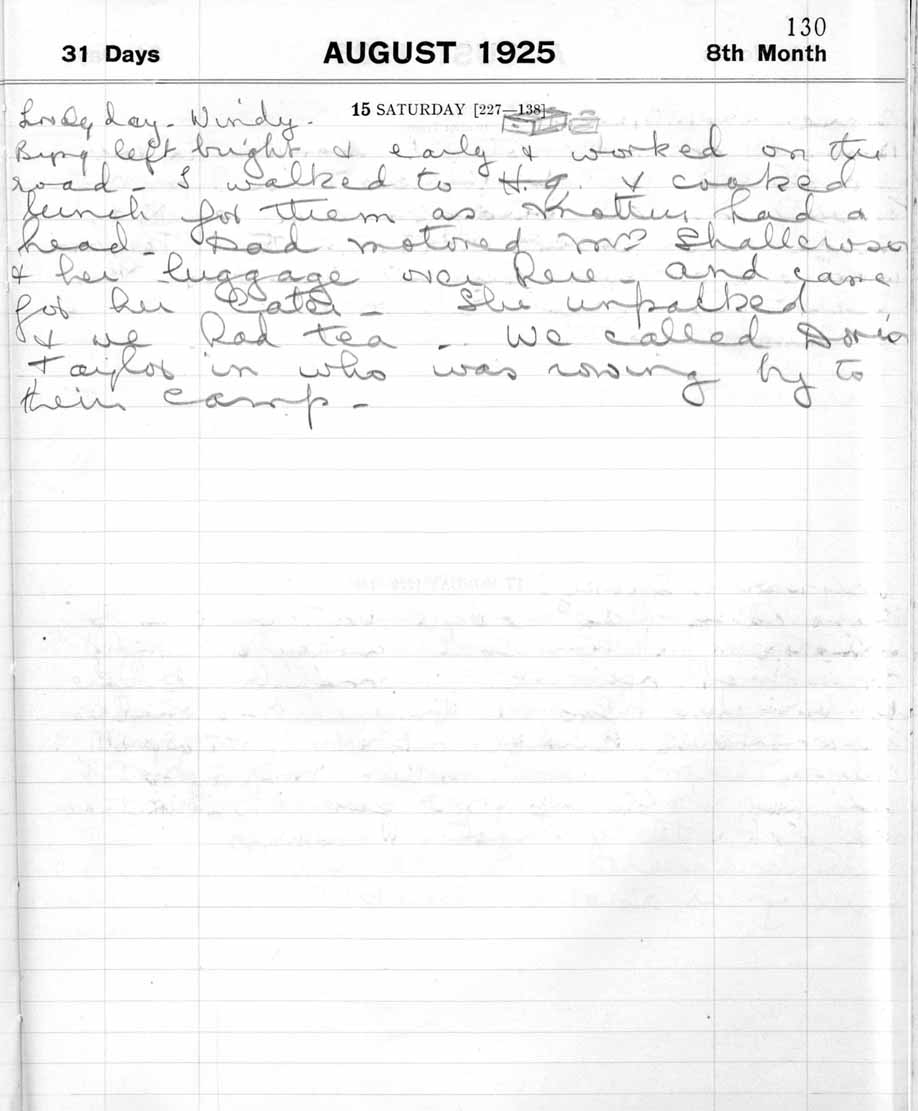 130
31 Days AUGUST 1925 8th Month
Lovely day - Windy. 15 SATURDAY [227—138]
Byng left bright & early & worked on the
road - I walked to H.Q. & cooked
lunch for them as Mother had a
head - Dad motored Mrs Shallcross
& her luggage over here - and came
for her later - She unpacked
& we had tea - We called Doris
Taylor in who was rowing by to
their camp -